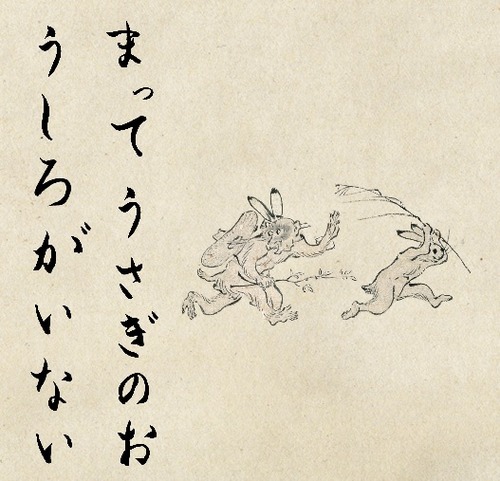 まって うさぎのお
うしろがいない